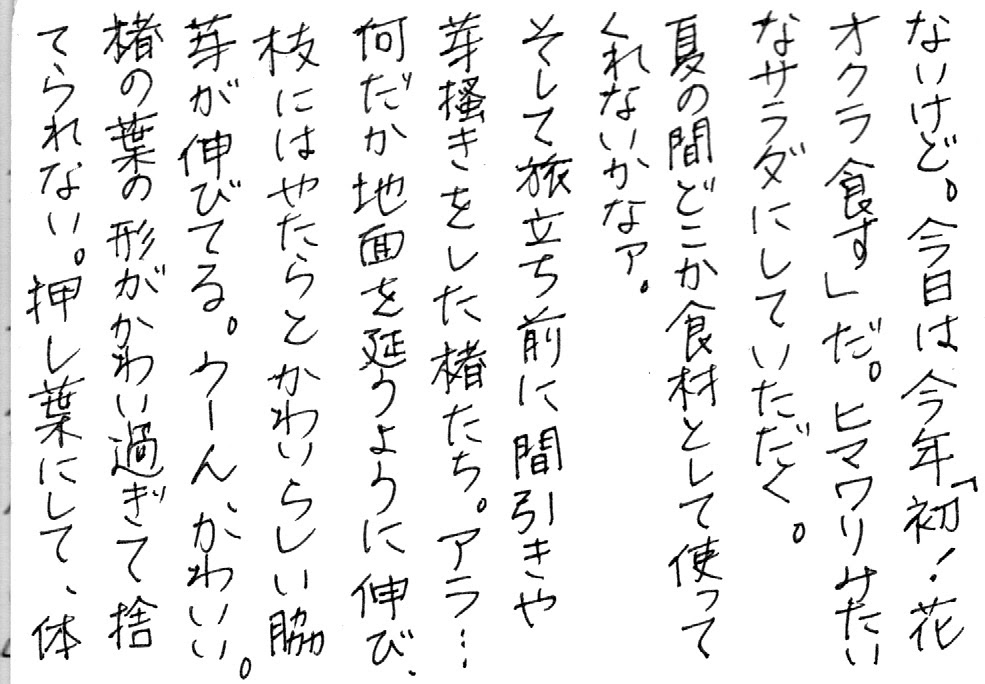 ないけど。今日は今年「初!花
オクラ食す」だ。ヒマワリみたい
なサラダにしていただく。
夏の間どこか食材として使って
くれないかなァ。
そして旅立ち前に間引きや
芽掻きをした楮たち。アラ…
何だか地面を延うように伸び、
枝にはやたらとかわいらしい脇
芽が伸びてる。うーん、かわいい。
楮の葉の形がかわい過ぎて捨
てられない。押し葉にして、体